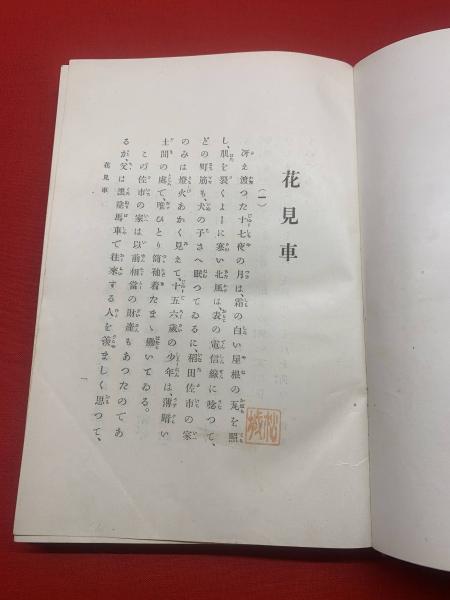 花見車
（一）
冴え渡つた十七夜の月は、霜の白い屋根の瓦を照
し、肌を裂くよーに寒い北風は、表の電信線に唸つて、
どの町筋も、犬の子さへ眠つてゐるに、稻田佐市の家
のみは燈火あかく見えて、十五六歳の少年は、薄暗い
土間の處で、唯ひとり筒袖着たまゝ働いてゐる。
この佐市の家は以前相當の財産もあつたのであ
るが、父は黑塗馬車で往來する人を羨ましく思つて、
花見車
一